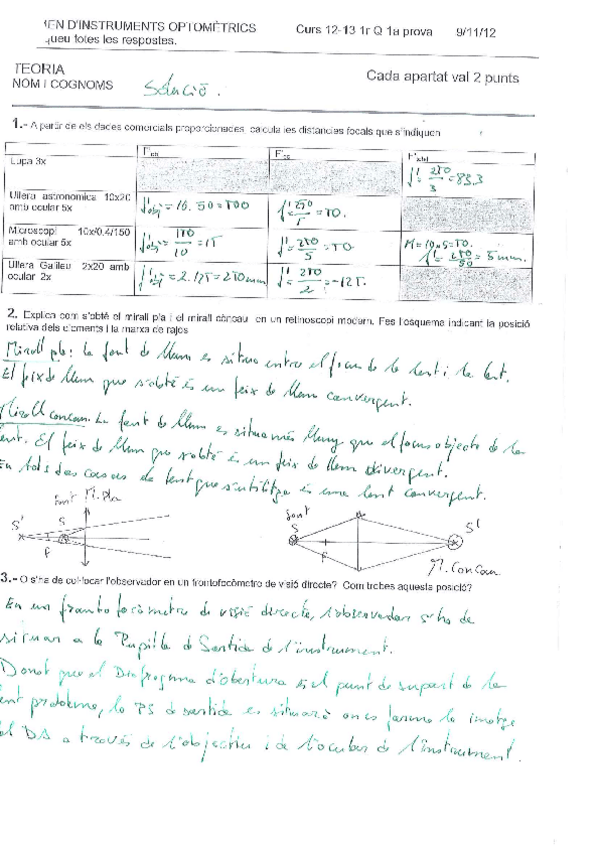 MEN D'INSTRUMENTS OPTOMÈTRICS Curs 12-13 1r Q 1a prova 9/11/12
queu totes les respostes.
TEORIA Cada apartat val 2 punts
NOM I COGNOMS Solució.
1.- A partir de els dades comercials proporcionades, calcula les distancies focals que s'indiquen
F'ob F'oc F'total
Lupa 3x f' = 250/3 = 83,3
Ullera astronomica 10x20 amb ocular 5x f'obj = 10.50 = 500 f' = 250/5 = 50.
Microscopi 10x/0,4/150 amb ocular 5x f'obj = 150/10 = 15 f' = 250/5 = 50 M = 10.5 = 50. f' = 250/50 = 5 mm.
Ullera Galileu 2x20 amb ocular 2x f'obj = 2.125 = 250mm f' = 250/2 = -125.
2. Explica com s'obté el mirall pla i el mirall còncau en un retinoscopi modern. Fes l'esquema indicant la posició
relativa dels elements i la marxa de rajos
Mirall pla: la font de llum es situa entre el focus de la lent i la lent.
El feix de llum que s'obté és un feix de llum convergent.
Mirall concau. La font de llum es situa més lluny que el focus objecte de la
lent. El feix de llum que s'obté és un feix de llum divergent.
En tots dos casos la lent que s'utilitza és una lent convergent.
font M. Pla font
S' S F S F S'
M. Concau
3.- O s'ha de col·locar l'observador en un frontofocòmetre de visió directe? Com trobes aquesta posició?
En un frontofocòmetre de visió directe, l'observador s'ha de
situar a la Pupil·la de Sortida de l'instrument.
Donat que el Diafragma d'obertura és el punt de suport de la
lent problema, la PS de sortida es situarà on es formi la imatge
el DA a través de l'objectiu i de l'ocular de l'instrument.